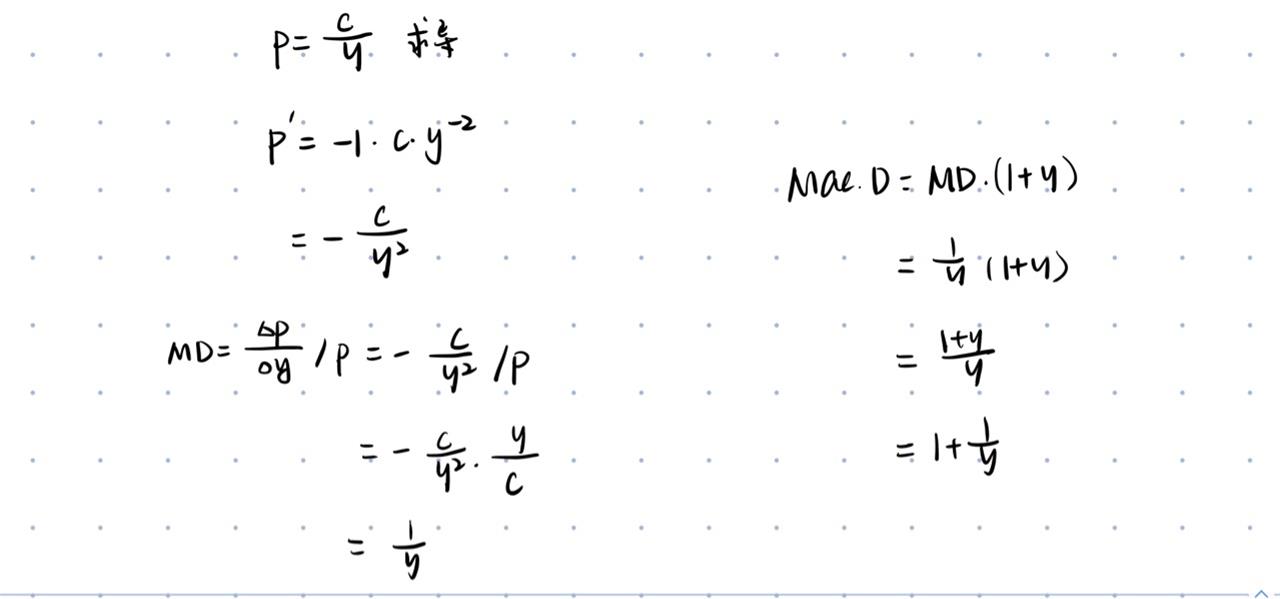 P = c/y 求导
P' = -1 · c · y⁻²
= - c/y²
MD = ΔP/Δy / P = - c/y² / P
= - c/y² · y/c
= 1/y
Mac. D = MD · (1+y)
= 1/y (1+y)
= 1+y/y
= 1 + 1/y